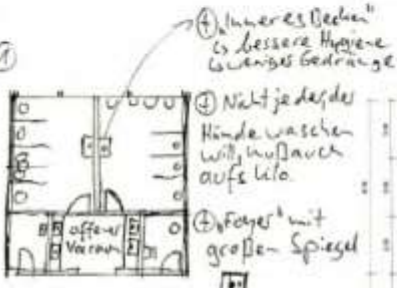 ①
⊕ „Inneres Becken"
↳ bessere Hygiene
↳ weniger Gedränge
⊕ Nicht jeder, der
Hände waschen
will, muß auch
aufs Klo.
⊕ „Foyer" mit
großem Spiegel
offener
Vorraum